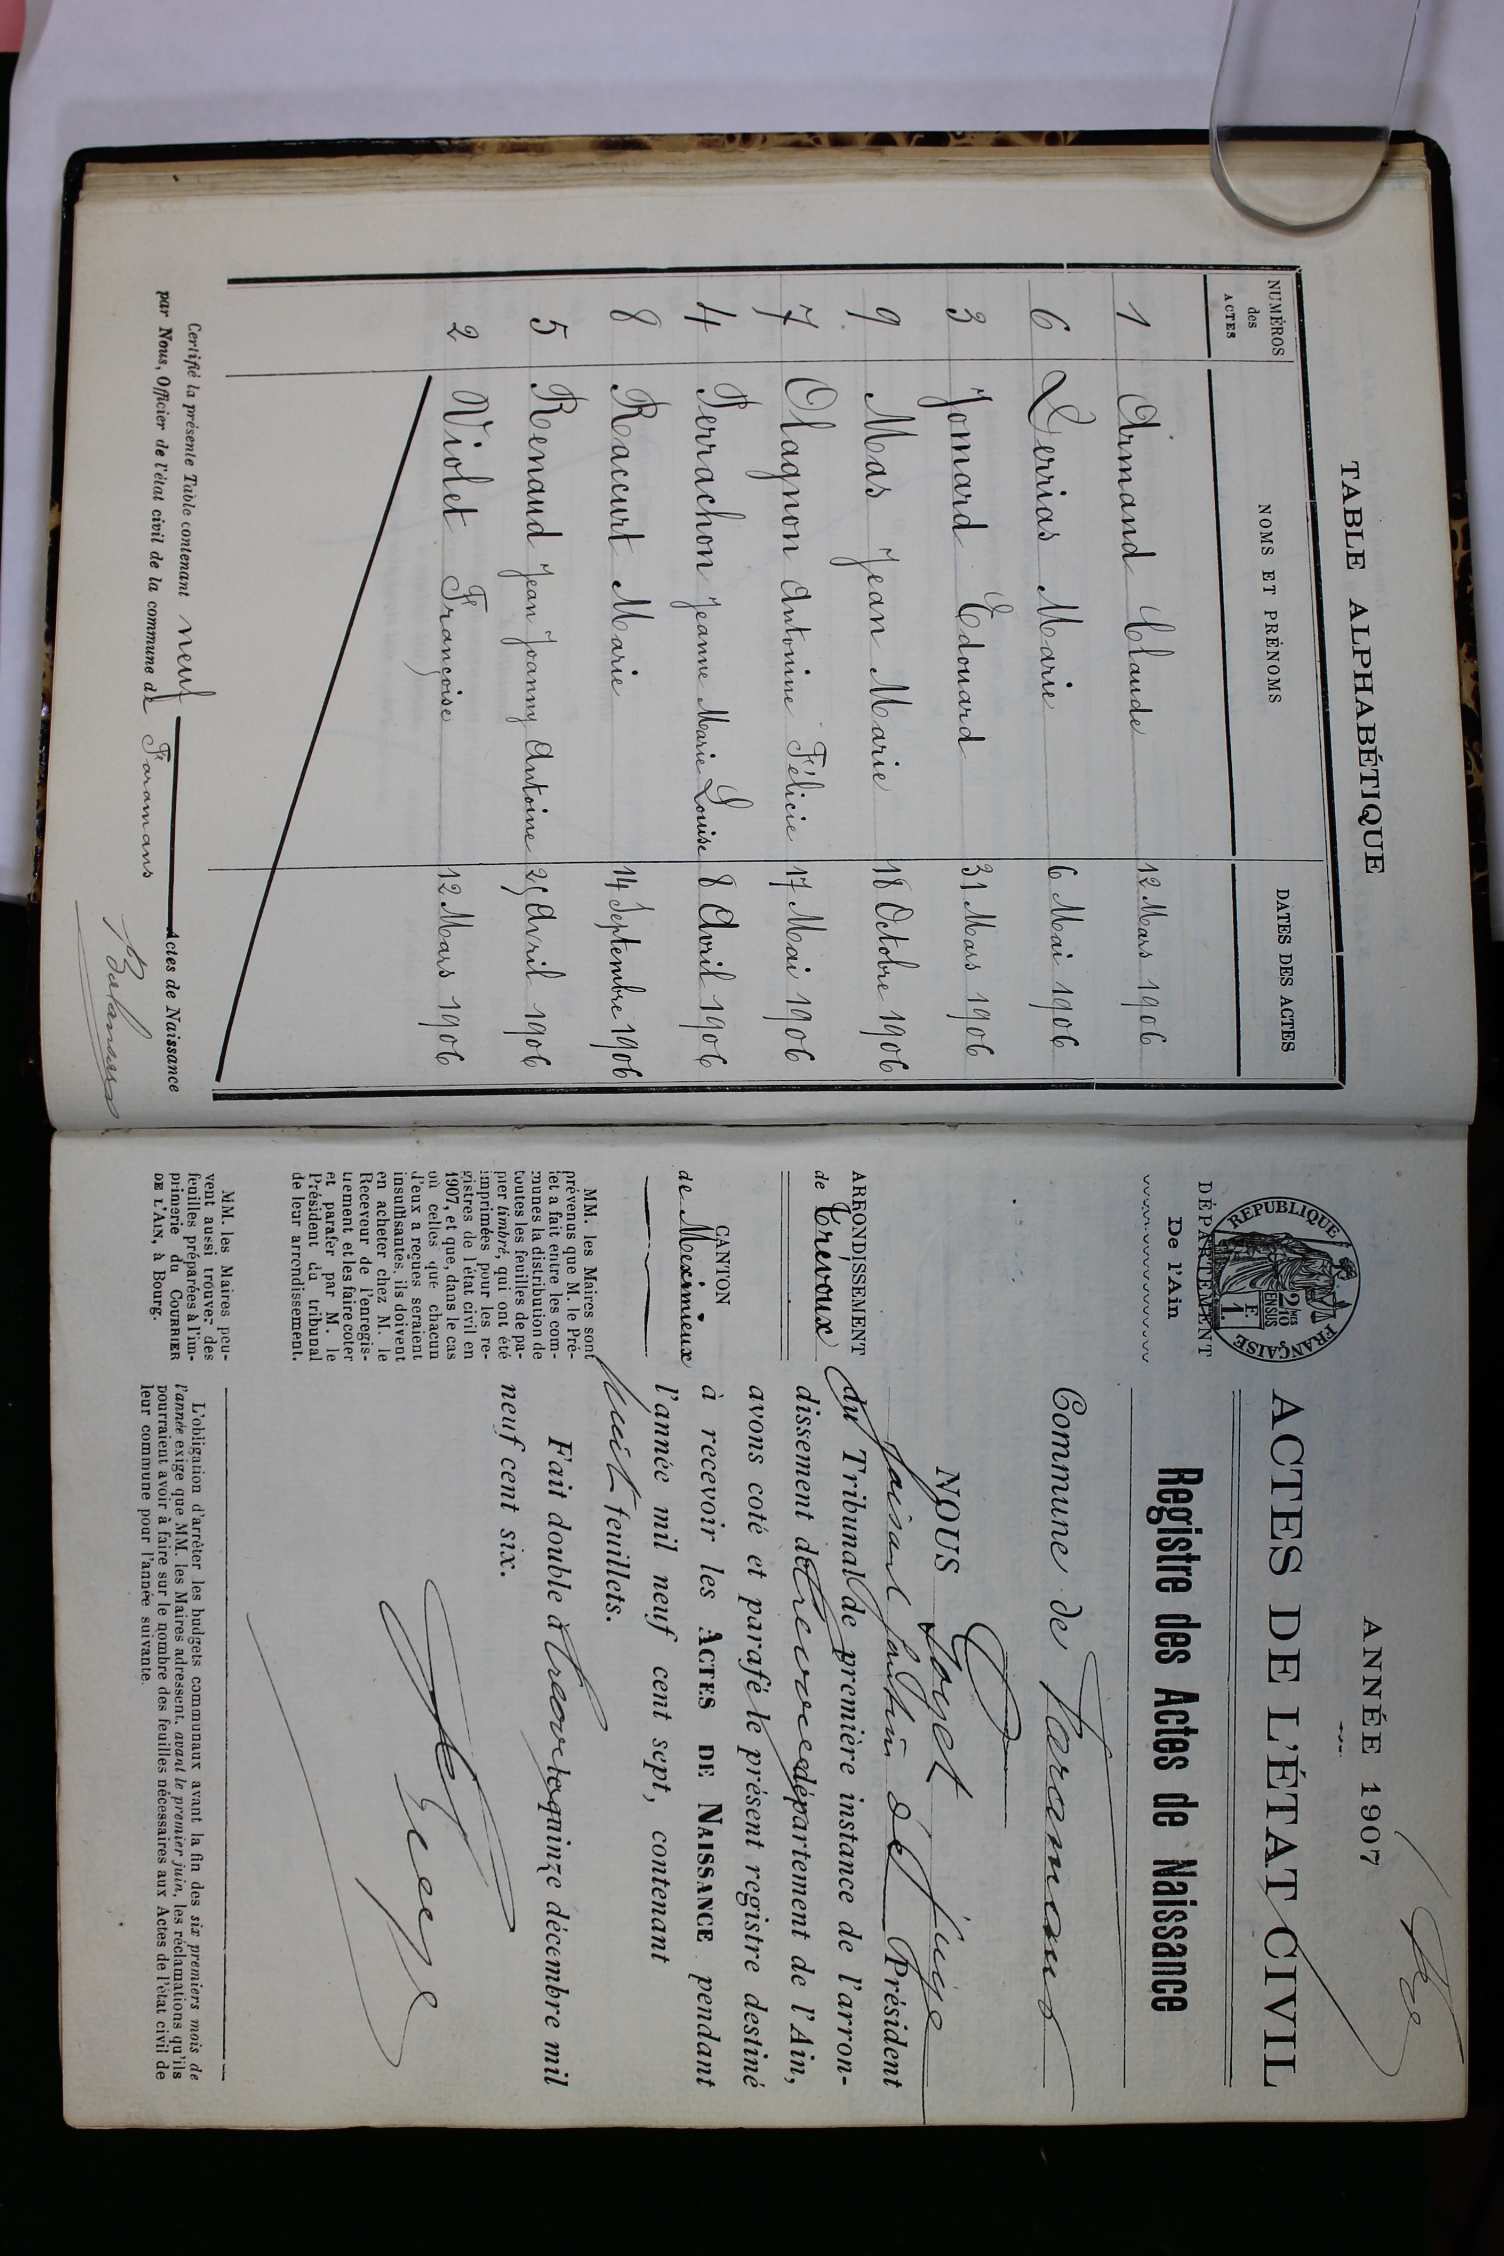 TABLE ALPHABÉTIQUE
NUMÉROS des ACTES
NOMS ET PRÉNOMS
DATES DES ACTES
1 Armand Claude 12 Mars 1906
6 Derrias Marie 6 Mai 1906
3 Jomard Edouard 31 Mars 1906
9 Mas Jean Marie 18 Octobre 1906
7 Olagnon Antonine Félicie 17 Mai 1906
4 Perrachon Jeanne Marie Louise 8 Avril 1906
8 Raccurt Marie 14 Septembre 1906
5 Renaud Jean Joanny Antoine 25 Avril 1906
2 Violet Françoise 12 Mars 1906
Certifié la présente Table contenant neuf Actes de Naissance
par Nous, Officier de l'état civil de la commune de Faramans
ANNÉE 1907
RÉPUBLIQUE FRANÇAISE
2/10 EN SUS
1 F.
DÉPARTEMENT
De l'Ain
ARRONDISSEMENT
de Trévoux
CANTON
de Meximieux
MM. les Maires sont
prévenus que M. le Pré-
fet a fait entre les com-
munes la distribution de
toutes les feuilles de pa-
pier timbré, qui ont été
imprimées pour les re-
gistres de l'état civil en
1907, et que, dans le cas
où celles que chacun
d'eux a reçues seraient
insuffisantes, ils doivent
en acheter chez M. le
Receveur de l'enregis-
trement et les faire coter
et parafer par M. le
Président du tribunal
de leur arrondissement.
MM. les Maires peu-
vent aussi trouver des
feuilles préparées à l'im-
primerie du COURRIER
DE L'AIN, à Bourg.
ACTES DE L'ÉTAT CIVIL
Registre des Actes de Naissance
Commune de Faramans
NOUS juge
faisant fonction de Président
du Tribunal de première instance de l'arron-
dissement de Trévoux département de l'Ain,
avons coté et parafé le présent registre destiné
à recevoir les ACTES DE NAISSANCE pendant
l'année mil neuf cent sept, contenant
huit feuillets.
Fait double à Trévoux quinze décembre mil
neuf cent six.
L'obligation d'arrêter les budgets communaux avant la fin des six premiers mois de
l'année exige que MM. les Maires adressent, avant le premier juin, les réclamations qu'ils
pourraient avoir à faire sur le nombre des feuilles nécessaires aux Actes de l'état civil de
leur commune pour l'année suivante.